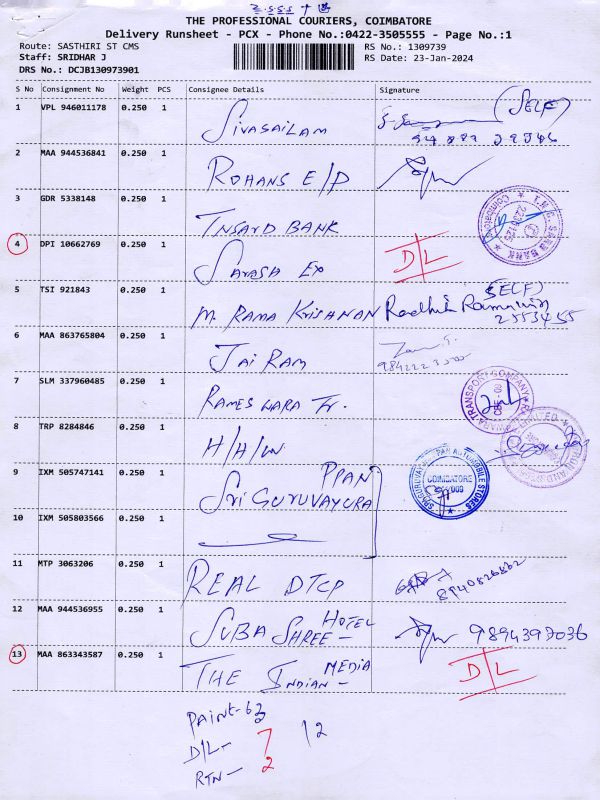 THE PROFESSIONAL COURIERS, COIMBATORE
Delivery Runsheet - PCX - Phone No.:0422-3505555 - Page No.:1
Route: SASTHIRI ST CMS RS No.: 1309739
Staff: SRIDHAR J RS Date: 23-Jan-2024
DRS No.: DCJB130973901
S No Consignment No Weight PCS Consignee Details Signature
1 VPL 946011178 0.250 1 SIVASAILAM (SELF)
2 MAA 944536841 0.250 1 ROHANS E/P
3 GDR 5338148 0.250 1 TNSARD BANK
4 DPI 10662769 0.250 1 SARASA EX D/L
5 TSI 921843 0.250 1 M. RAMA KRISHNAN (SELF)
2553455
6 MAA 863765804 0.250 1 JAI RAM
7 SLM 337960485 0.250 1 RAMESWARA Tr.
8 TRP 8284846 0.250 1 H/H/W
9 IXM 505747141 0.250 1 SRI GURUVAYURAPPAN
COIMBATORE
10 IXM 505803566 0.250 1
11 MTP 3063206 0.250 1 REAL DTCP
12 MAA 944536955 0.250 1 SUBA SHREE - HOTEL 9894397036
13 MAA 863343587 0.250 1 THE INDIAN - MEDIA D/L
D/L - 7 12
RTN - 2